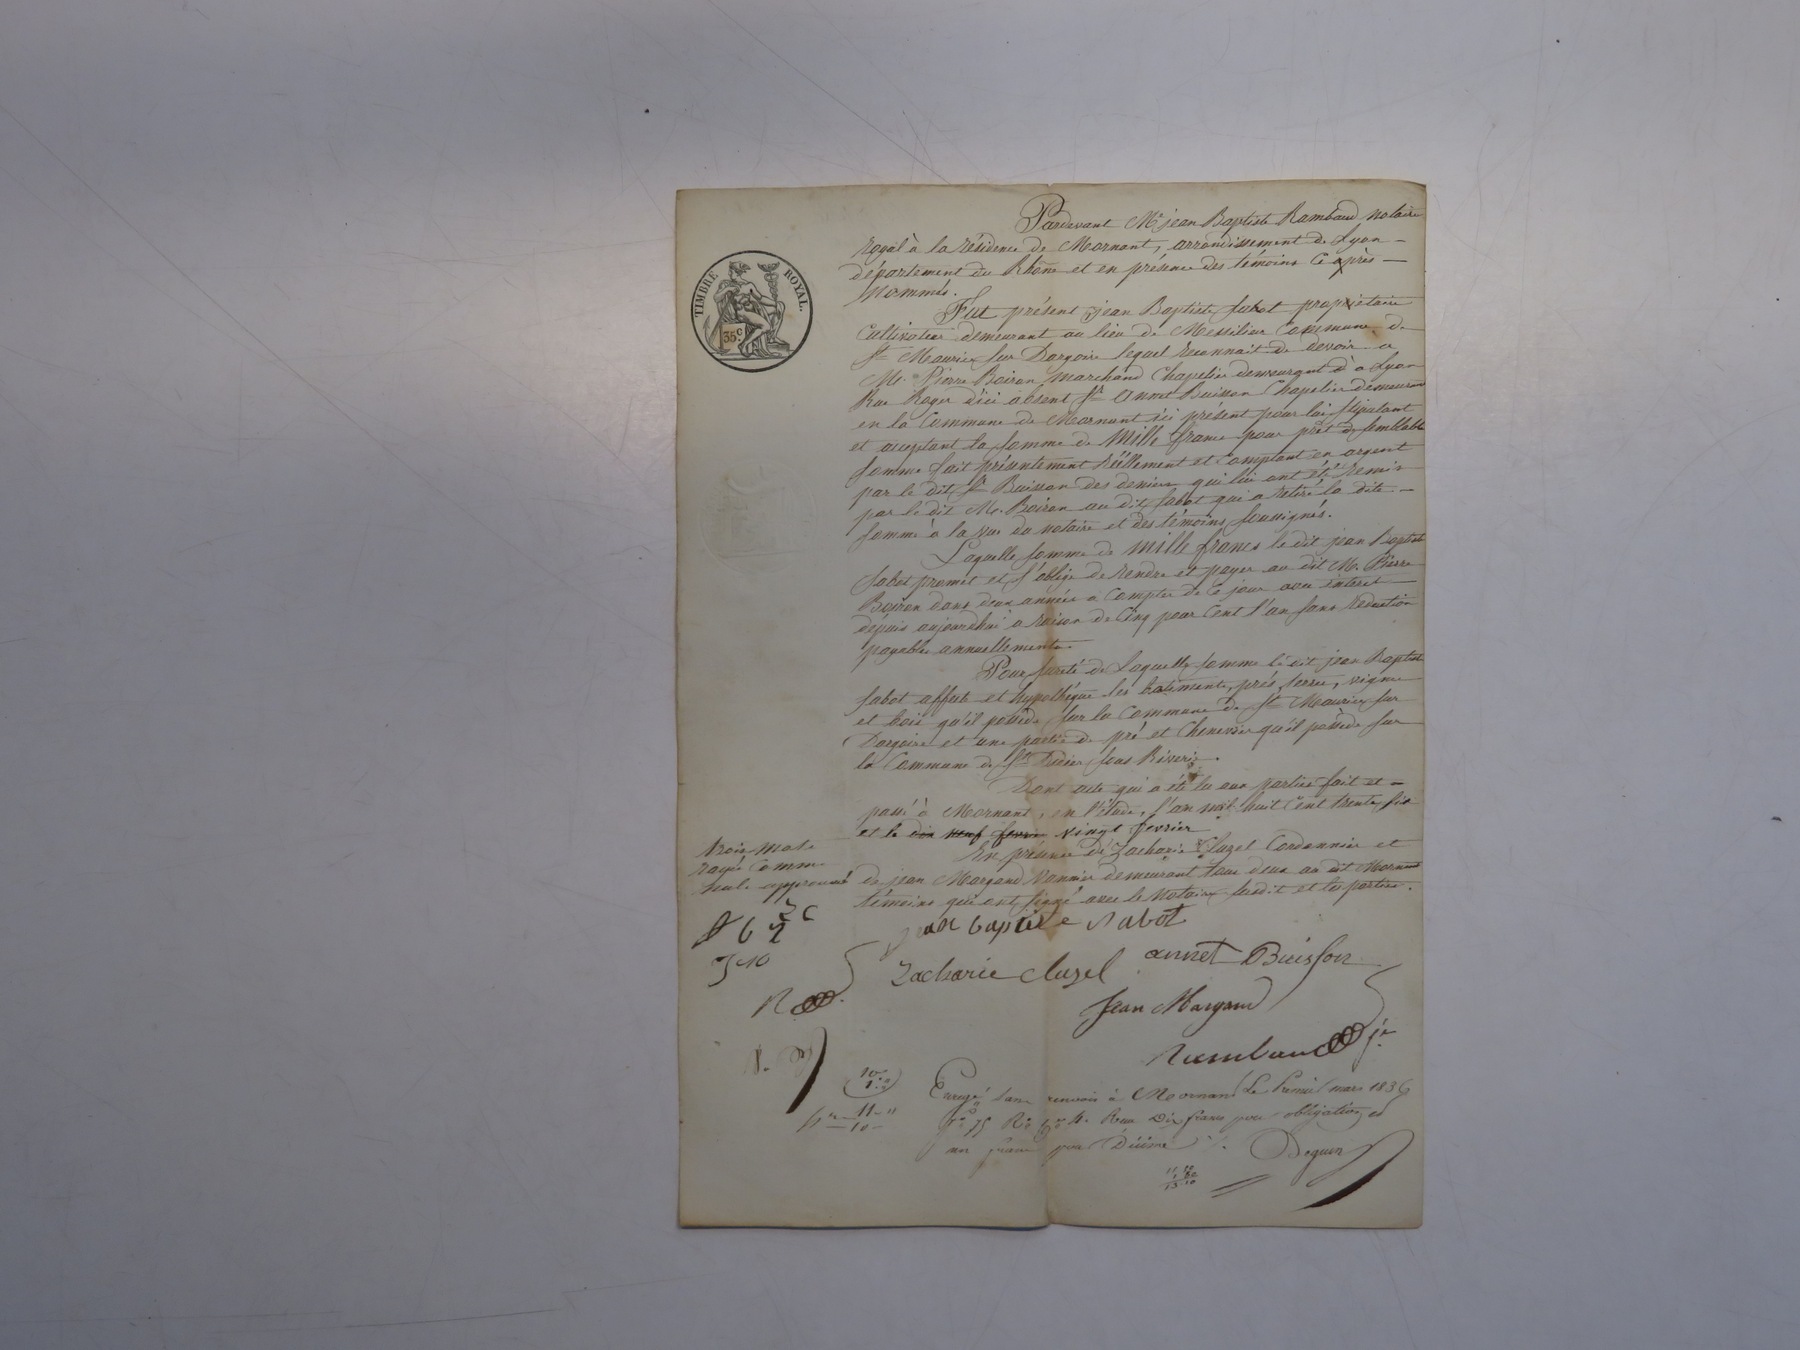 TIMBRE ROYAL.
35 c.
Pardevant Me jean Baptiste Rambaud notaire
royal à la résidence de Mornant, arrondissement de Lyon –
département du Rhône et en présence des témoins Ci après –
Nommés.
Fut présent jean Baptiste Sabot propriétaire
Cultivateur demeurant au lieu de Messilieu Commune de
St Maurice sur Dargoire lequel reconnait de devoir a
M. Pierre Boiron marchand Chapelier demeurant à Lyon
Rue Roger d'ici absent Sr Annet Buisson Chapelier demeurant
en la Commune de Mornant ici présent pour lui stipulant
et acceptant la somme de Mille francs pour prêt de semblable
somme fait présentement réellement et comptant en argent
par le dit Sr Buisson des deniers qui lui ont été remis
par le dit M. Boiron au dit Sabot qui a retiré la dite –
somme à la vue du notaire et des témoins soussignés.
Laquelle somme de Mille francs le dit jean Baptiste
Sabot promet et s'oblige de rendre et payer au dit M. Pierre
Boiron dans deux années a Compter de ce jour avec intérêt
depuis aujourdhui a raison de Cinq pour Cent l'an sans réduction
payable annuellement.
Pour sureté de Laquelle somme le dit jean Baptiste
Sabot affecte et hypothéque les batiments, prés, terres, vignes
et bois qu'il possède sur la Commune de St Maurice sur
Dargoire et une partie de pré et Chenevier qu'il possède sur
la Commune de St Didier sous Riverie.
Dont acte qui a été lu aux parties fait et –
passé à Mornant, en l'étude, l'an mil huit Cent trente six
et le dix neuf fevrier vingt fevrier
En présence de Zacharie Cluzel Cordonnier et
de jean Margand Vannier demeurant tous deux au dit Mornant
témoins qui ont signé avec le Notaire susdit et les parties.
trois mots
rayés Comme
nuls approuvé
jean baptiste Sabot
Zacharie Cluzel
annet Buisson
Jean Margand
Rambaud
Enregé sans renvois à Mornant Le Premier mars 1836
fo 75 Ro Co 4. Reçu Dix francs pour obligation et
un franc pour Décime